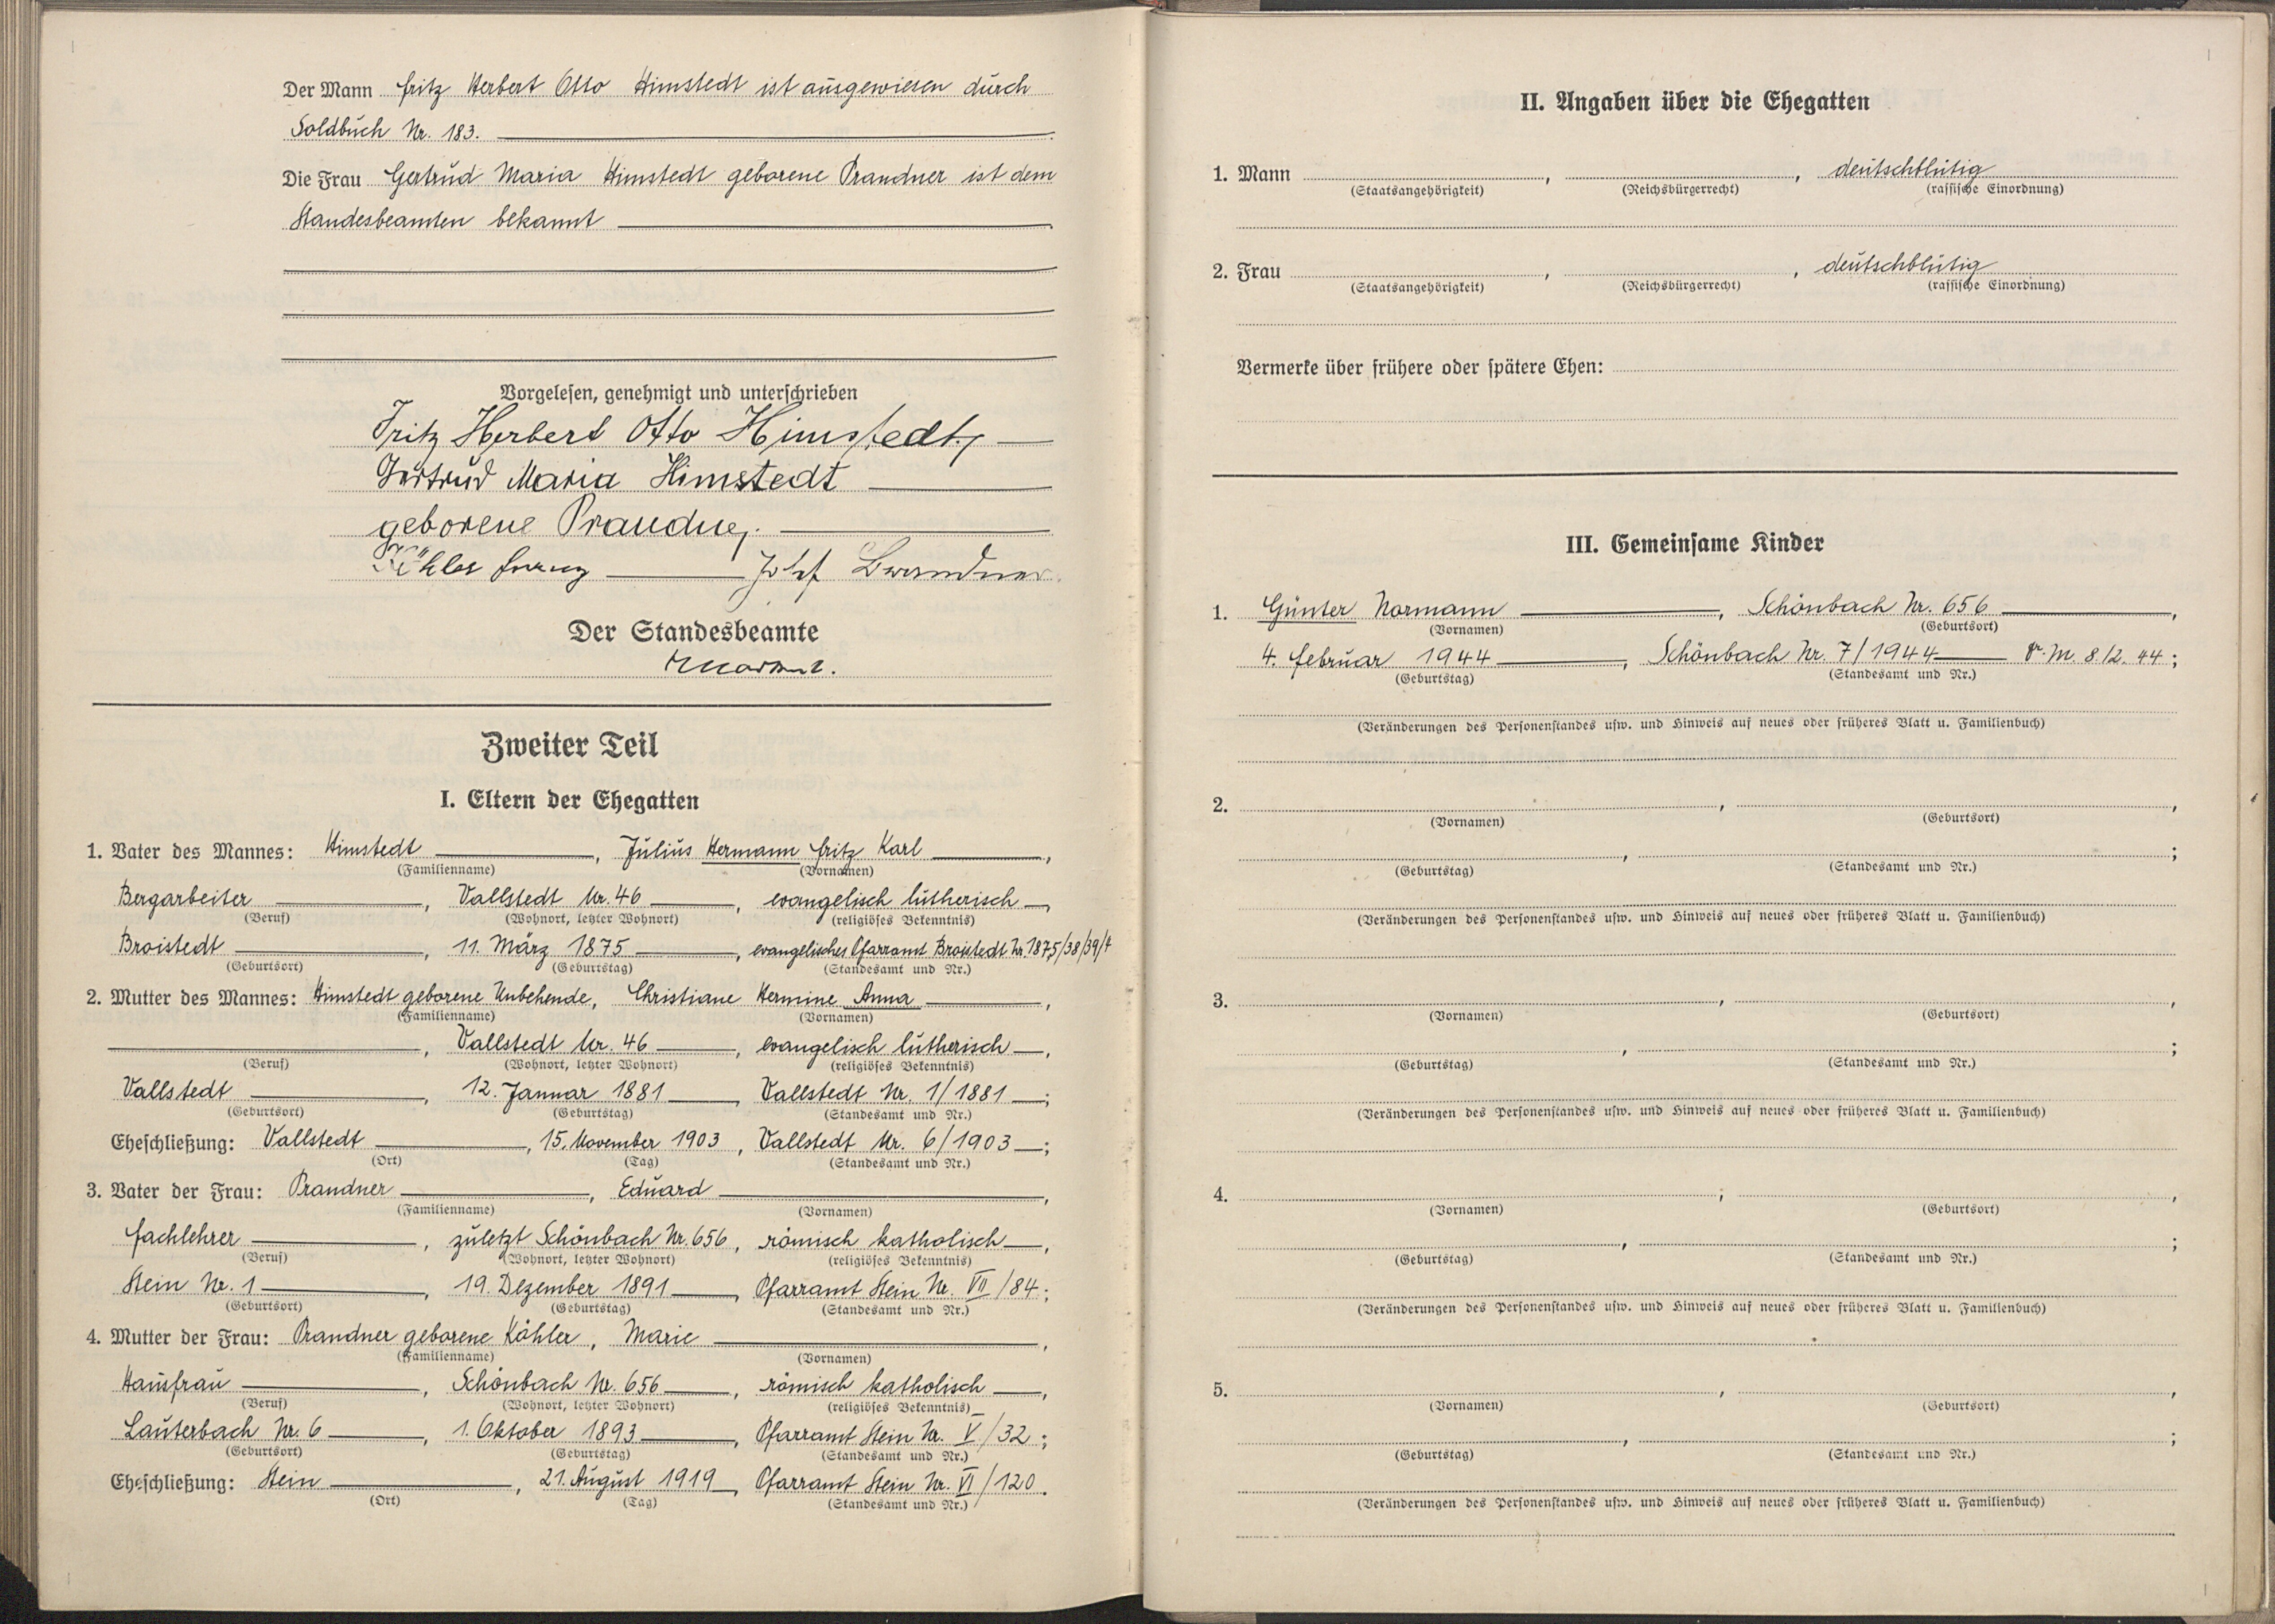 Der Mann Fritz Herbert Otto Himstedt ist ausgewiesen durch
Soldbuch Nr. 183.
Die Frau Gertrud Maria Himstedt geborene Prandner ist dem
Standesbeamten bekannt
Vorgelesen, genehmigt und unterschrieben
Fritz Herbert Otto Himstedt,
Gertrud Maria Himstedt
geborene Prandner.
Josef
Der Standesbeamte
Zweiter Teil
I. Eltern der Ehegatten
1. Vater des Mannes: Himstedt, Julius Hermann Fritz Karl,
(Familienname) (Vornamen)
Bergarbeiter, Vallstedt Nr. 46, evangelisch lutherisch,
(Beruf) (Wohnort, letzter Wohnort) (religiöses Bekenntnis)
Broistedt, 11. März 1875, evangelisches Pfarramt Broistedt Nr. 1875/38/39/4
(Geburtsort) (Geburtstag) (Standesamt und Nr.)
2. Mutter des Mannes: Himstedt geborene Unbehende, Christiane Hermine Anna,
(Familienname) (Vornamen)
, Vallstedt Nr. 46, evangelisch lutherisch,
(Beruf) (Wohnort, letzter Wohnort) (religiöses Bekenntnis)
Vallstedt, 12. Januar 1881, Vallstedt Nr. 1/1881;
(Geburtsort) (Geburtstag) (Standesamt und Nr.)
Eheschließung: Vallstedt, 15. November 1903, Vallstedt Nr. 6/1903;
(Ort) (Tag) (Standesamt und Nr.)
3. Vater der Frau: Prandner, Eduard,
(Familienname) (Vornamen)
Fachlehrer, zuletzt Schönbach Nr. 656, römisch katholisch,
(Beruf) (Wohnort, letzter Wohnort) (religiöses Bekenntnis)
Stein Nr. 1, 19. Dezember 1891, Pfarramt Stein Nr. VII/84;
(Geburtsort) (Geburtstag) (Standesamt und Nr.)
4. Mutter der Frau: Prandner geborene Köhler, Marie,
(Familienname) (Vornamen)
Hausfrau, Schönbach Nr. 656, römisch katholisch,
(Beruf) (Wohnort, letzter Wohnort) (religiöses Bekenntnis)
Lauterbach Nr. 6, 1. Oktober 1893, Pfarramt Stein Nr. V/32;
(Geburtsort) (Geburtstag) (Standesamt und Nr.)
Eheschließung: Stein, 21. August 1919, Pfarramt Stein Nr. VI/120.
(Ort) (Tag) (Standesamt und Nr.)
II. Angaben über die Ehegatten
1. Mann , , deutschblütig
(Staatsangehörigkeit) (Reichsbürgerrecht) (rassische Einordnung)
2. Frau , , deutschblütig
(Staatsangehörigkeit) (Reichsbürgerrecht) (rassische Einordnung)
Vermerke über frühere oder spätere Ehen:
III. Gemeinsame Kinder
1. Günter Normann, Schönbach Nr. 656,
(Vornamen) (Geburtsort)
4. Februar 1944, Schönbach Nr. 7/1944 8./2. 44;
(Geburtstag) (Standesamt und Nr.)
(Veränderungen des Personenstandes usw. und Hinweis auf neues oder früheres Blatt u. Familienbuch)
2. , ,
(Vornamen) (Geburtsort)
, ;
(Geburtstag) (Standesamt und Nr.)
(Veränderungen des Personenstandes usw. und Hinweis auf neues oder früheres Blatt u. Familienbuch)
3. , ,
(Vornamen) (Geburtsort)
, ;
(Geburtstag) (Standesamt und Nr.)
(Veränderungen des Personenstandes usw. und Hinweis auf neues oder früheres Blatt u. Familienbuch)
4. , ,
(Vornamen) (Geburtsort)
, ;
(Geburtstag) (Standesamt und Nr.)
(Veränderungen des Personenstandes usw. und Hinweis auf neues oder früheres Blatt u. Familienbuch)
5. , ,
(Vornamen) (Geburtsort)
, ;
(Geburtstag) (Standesamt und Nr.)
(Veränderungen des Personenstandes usw. und Hinweis auf neues oder früheres Blatt u. Familienbuch)